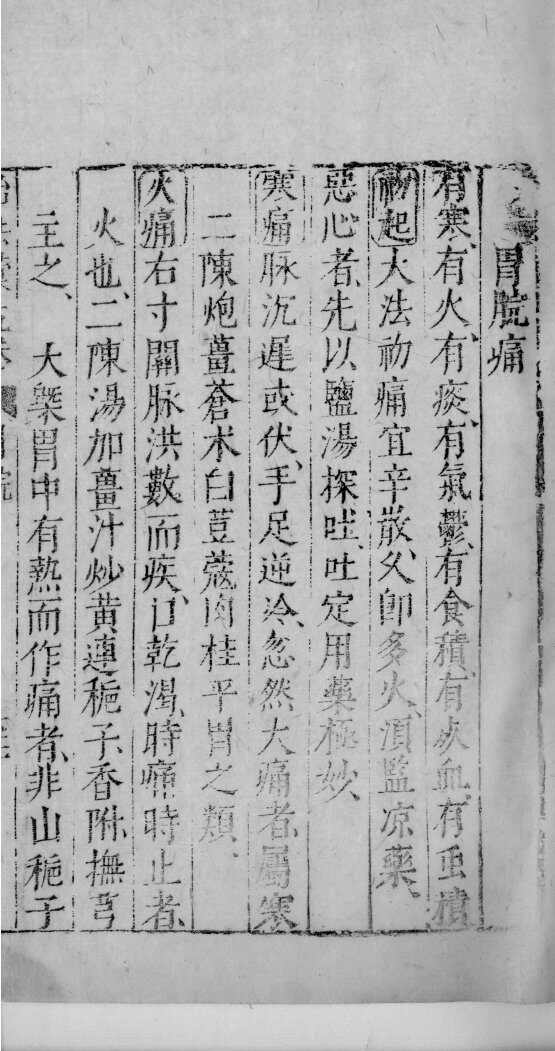 胃脘痛
有寒、有火、有痰、有氣鬱、有食積、有死血、有虫積
初起大法初痛宜辛散、久卽多火、須監凉藥、
惡心者、先以鹽湯探吐、吐定用藥極妙、
寒痛脉沉遲或伏、手足逆冷、忽然大痛者、屬寒
二陳炮薑蒼术白荳蔻肉桂平胃之類、
火痛右寸關脉洪數而疾、口乾渴、時痛時止者、
火也、二陳湯加薑汁炒黃連梔子、香附、撫芎
主之、大槩胃中有熱而作痛者、非山梔子